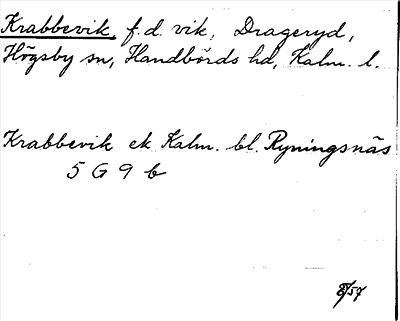 Krabbevik, f.d. vik, Drageryd,
Högsby sn, Handbörds hd, Kalm. l.
Krabbevik ek Kalm. bl. Ryningsnäs
5 G 9 b